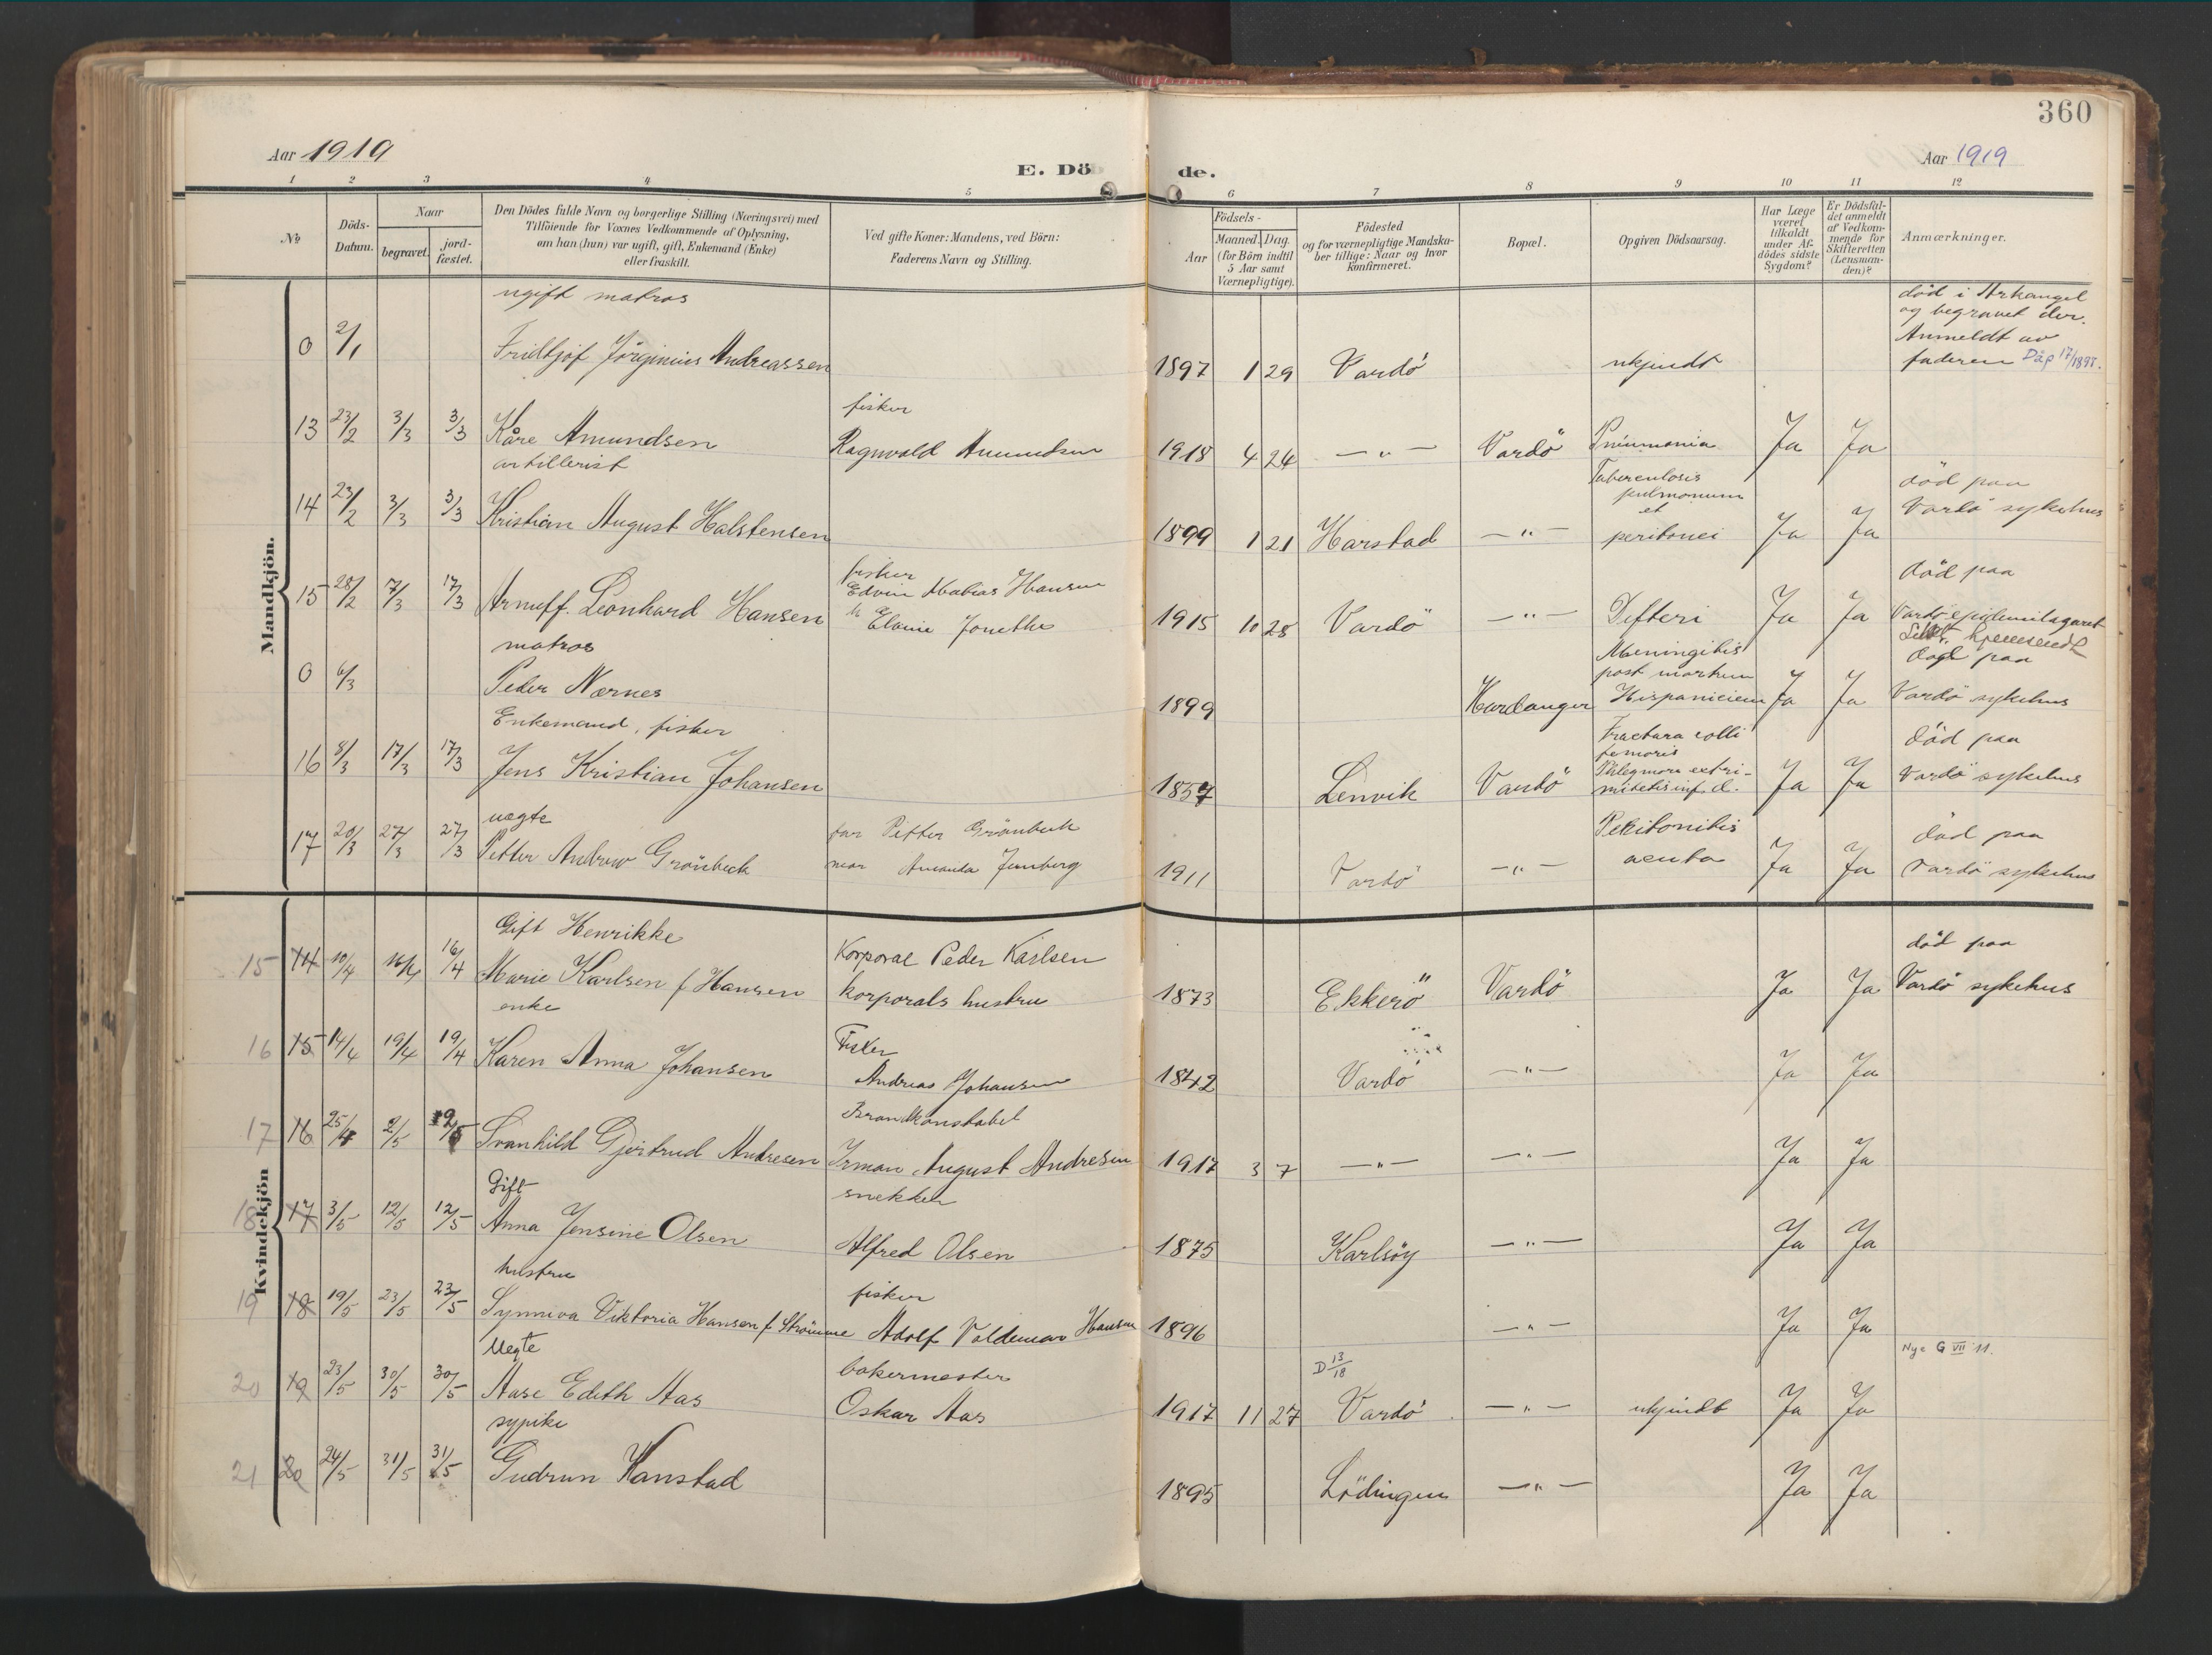 360
Aar 1919
E. Döde.
Aar 1919
1 2 3 4 5 6 7 8 9 10 11 12
No
Döds-Datum.
Naar
begravet.
jord-fæstet.
Den Dödes fulde Navn og borgerlige Stilling (Næringsvei) med
Tilföiende for Voxnes Vedkommende af Oplysning,
om han (hun) var ugift, gift, Enkemand (Enke)
eller fraskilt.
Ved gifte Koner: Mandens, ved Börn:
Faderens Navn og Stilling.
Födsels-
Aar
Maaned. Dag.
(for Börn indtil
5 Aar samt
Værnepligtige).
Födested
og for værnepligtige Mandska-
ber tillige: Naar og hvor
konfirmeret.
Bopæl.
Opgiven Dödsaarsag.
Har Læge
været
tilkaldt
under Af-
dödes sidste
Sygdom?
Er Dödsfal-
det anmeldt
af Vedkom-
mende for
Skifteretten
(Lensman-
den)?
Anmærkninger.
Mandkjön.
ugift matros
0 2/1 Fridtjof Jörginius Andreassen 1897 1 29 Vardö ukjendt
död i Arkangel
og begravet der.
Anmeldt av
faderen Dåp 17/1897.
fisker
13 23/2 3/3 3/3 Kåre Amundsen Ragnvald Amundsen 1918 4 24 —"— Vardö Pneumonia Ja Ja
artillerist
14 23/2 3/3 3/3 Kristian August Halstensen 1899 1 21 Harstad —"—
Tuberculosis
pulmonum
et
peritonei Ja Ja
död paa
Vardö sykehus
15 28/2 7/3 17/3 Arnuff. Leonhard Hansen
fisker
Edvin Mabias Hansen
h Elanie Jonetthe
1915 10 28 Vardö —"— Difteri Ja Ja
död paa
Vardö epidemilagaret
matros
0 6/3 Peder Nærnes 1899 Hardanger
Meningitis
post morbum
Hispaniciem Ja Ja
död paa
Vardö sykehus
Enkemand, fisker
16 8/3 17/3 17/3 Jens Kristian Johansen 1857 Lenvik Vardö
Fractura colli
femoris
Phlegmore extri-
mitetis inf. d. Ja Ja
död paa
Vardö sykehus
uegte
17 20/3 27/3 27/3 Petter Andrew Grönbeck
far Petter Grönbeck
mor Amanda Jernberg
1911 Vardö —"—
Peritonitis
acuta Ja Ja
död paa
Vardö sykehus
Kvindekjön
Gift Henrikke
15 14 10/4 16/4 16/4 Marie Karlsen f Hansen
Korporal Peder Karlsen
korporals hustru
1873 Ekkerö Vardö Ja Ja
död paa
Vardö sykehus
enke
16 15 14/4 19/4 19/4 Karen Anna Johansen
Fisker
Andreas Johansen
1842 Vardö —"— Ja Ja
17 16 25/4 2/5 12/5 Svanhild Gjertrud Andresen
Brandkonstabel
Irman August Andresen
1917 3 7 —"— —"— Ja Ja
Gift
18 17 3/5 12/5 12/5 Anna Jensine Olsen
snekker
Alfred Olsen
1875 Karlsöy —"— Ja Ja
hustru
19 18 19/5 23/5 23/5 Synniva Viktoria Hansen f Strömme
fisker
Adolf Valdemar Hansen
1896 —"— Ja Ja
Uegte
20 19 23/5 30/5 30/5 Aase Edith Aas
bakermester
Oskar Aas
1917 11 27
D 13/18
Vardö —"— ukjindt Ja Ja
Nye G VII 11.
sypike
21 20 24/5 31/5 31/5 Gudrun Kanstad 1895 Lödingen —"— Ja Ja